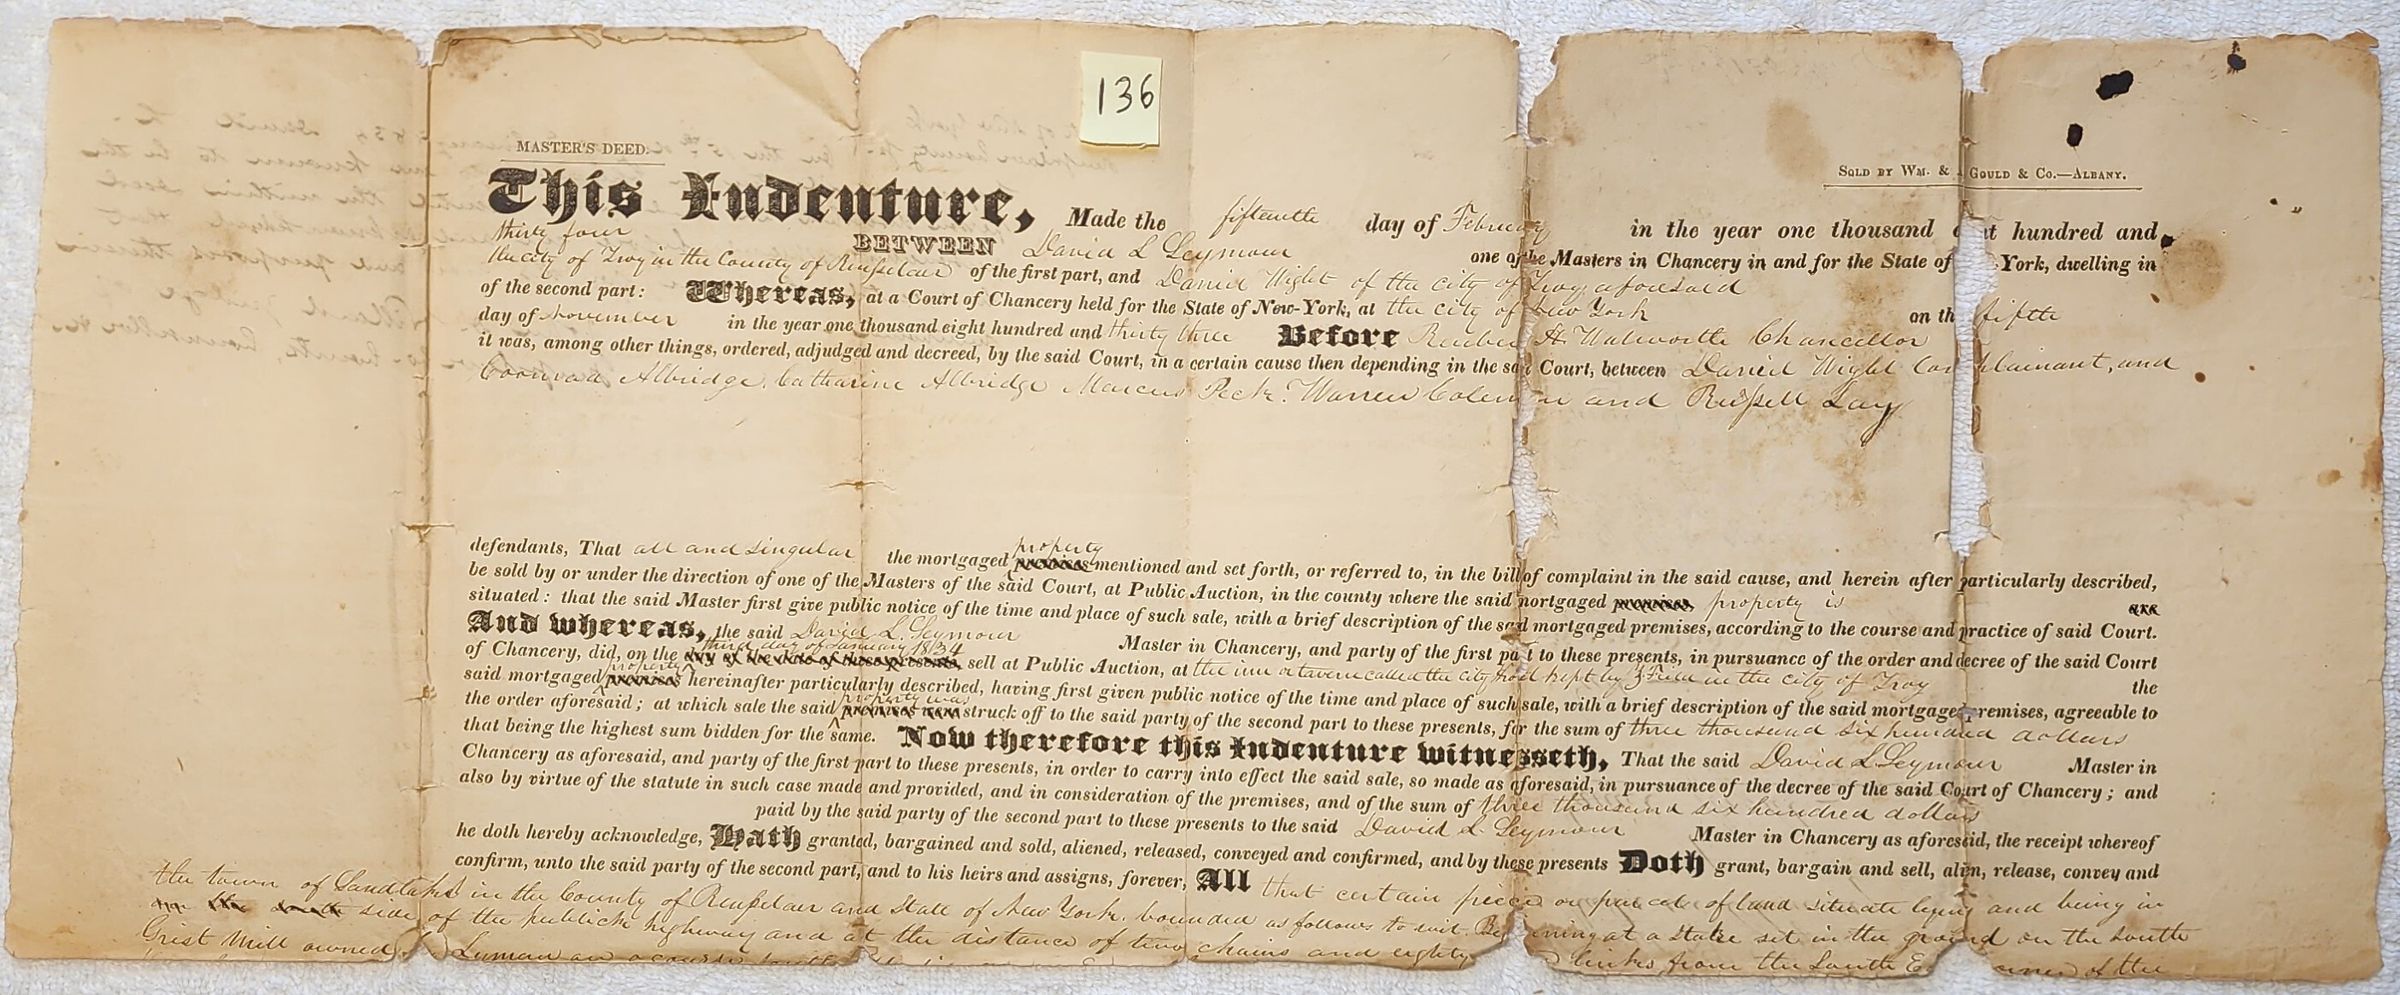 136
MASTER'S DEED.
SOLD BY WM. & A GOULD & CO.—ALBANY.
This Indenture, Made the fifteenth day of February in the year one thousand eight hundred and
thirty four BETWEEN David L Seymour one of the Masters in Chancery in and for the State of New-York, dwelling in
the city of Troy in the County of Rensselaer of the first part, and Daniel Wight of the city of Troy aforesaid
of the second part: Whereas, at a Court of Chancery held for the State of New-York, at the city of New York on the fifth
day of November in the year one thousand eight hundred and thirty three Before Reuben H Walworth Chancellor
it was, among other things, ordered, adjudged and decreed, by the said Court, in a certain cause then depending in the said Court, between Daniel Wight Complainant, and
Coonrad Albridge, Catharine Albridge Marcus Peck. Warren Coleman and Russell Lay
defendants, That all and singular the mortgaged premises property mentioned and set forth, or referred to, in the bill of complaint in the said cause, and herein after particularly described,
be sold by or under the direction of one of the Masters of the said Court, at Public Auction, in the county where the said mortgaged premises, property is are
situated: that the said Master first give public notice of the time and place of such sale, with a brief description of the said mortgaged premises, according to the course and practice of said Court.
And whereas, the said David L. Seymour Master in Chancery, and party of the first part to these presents, in pursuance of the order and decree of the said Court
of Chancery, did, on the day of the date of these presents, third day of January 1834 sell at Public Auction, at the inn or tavern called the city hotel kept by in the city of Troy the
said mortgaged premises property hereinafter particularly described, having first given public notice of the time and place of such sale, with a brief description of the said mortgaged premises, agreeable to
the order aforesaid; at which sale the said premises were property was struck off to the said party of the second part to these presents, for the sum of three thousand six hundred dollars
that being the highest sum bidden for the same. Now therefore this Indenture witnesseth, That the said David L Seymour Master in
Chancery as aforesaid, and party of the first part to these presents, in order to carry into effect the said sale, so made as aforesaid, in pursuance of the decree of the said Court of Chancery; and
also by virtue of the statute in such case made and provided, and in consideration of the premises, and of the sum of three thousand six hundred dollars
paid by the said party of the second part to these presents to the said David L. Seymour Master in Chancery as aforesaid, the receipt whereof
he doth hereby acknowledge, Hath granted, bargained and sold, aliened, released, conveyed and confirmed, and by these presents Doth grant, bargain and sell, alien, release, convey and
confirm, unto the said party of the second part, and to his heirs and assigns, forever, All that certain piece or parcel of land situate lying and being in
the town of Sandlake in the County of Rensselaer and State of New York. bounded as follows to wit. Beginning at a stake set in the ground on the south
on the south side of the publick highway and at the distance of two chains and eighty links from the South E corner of the
Grist Mill owned by Lyman on a course